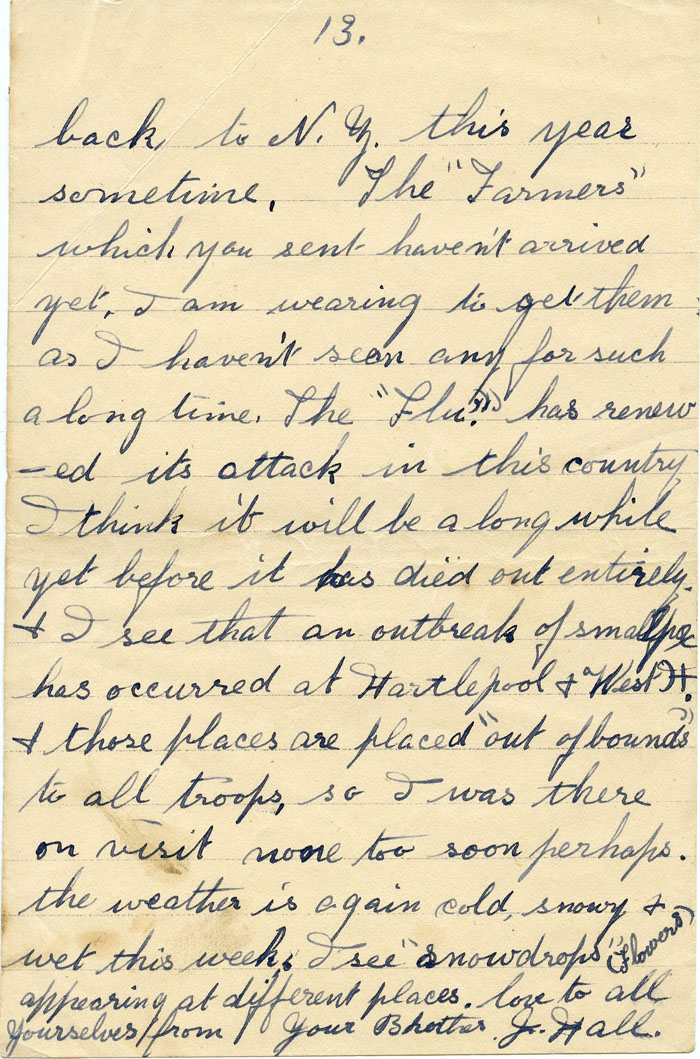 13.
back to N. Z. this year
sometime. The "Farmers"
which you sent haven't arrived
yet. I am wearing to get them
as I haven't seen any for such
a long time. The "Flu." has renew
-ed its attack in this country
I think it will be a long while
yet before it has died out entirely.
& I see that an outbreak of smallpox
has occurred at Hartlepool & "West H.
& those places are placed "out of bounds"
to all troops, so I was there
on visit none too soon perhaps.
the weather is again cold, snowy &
wet this week, I see "snowdrops" (Flowers)
appearing at different places. love to all
Yourselves from Your Brother J. Hall.